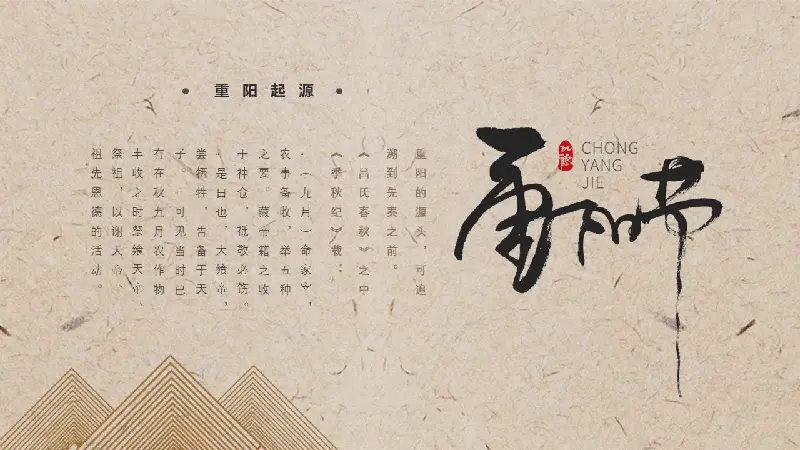 • 重阳起源 •
重阳的源头，可追
溯到先秦之前。
《吕氏春秋》之中
《季秋纪》载：
（九月）命家宰，
农事备收，举五种
之要。藏帝籍之收
于神仓，祗敬必饬。
是日也，大飨帝，
尝牺牲，告备于天
子。可见当时已
有在秋九月农作物
丰收之时祭飨天帝、
祭祖，以谢天帝、
祖先恩德的活动。
重阳节
CHONG
YANG
JIE